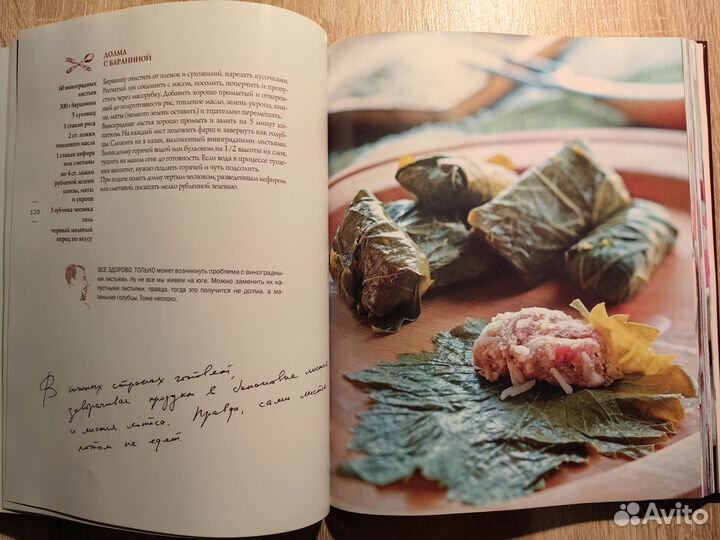 ДОЛМА
С БАРАНИНОЙ
60 виноградных
листьев
300 г баранины
5 луковиц
1 стакан риса
2 ст. ложки
топленого масла
1 стакан кефира
или сметаны
по 4 ст. ложки
рубленой зелени
кинзы, мяты
и укропа
3 зубчика чеснока
соль
черный молотый
перец по вкусу
120
Баранину очистить от пленок и сухожилий, нарезать кусочками.
Репчатый лук соединить с мясом, посолить, поперчить и пропу-
стить через мясорубку. Добавить хорошо промытый и отварен-
ный до полуготовности рис, топленое масло, зелень укропа, кин-
зы, мяты (немного зелени оставить) и тщательно перемешать.
Виноградные листья хорошо промыть и залить на 5 минут ки-
пятком. На каждый лист положить фарш и завернуть как голуб-
цы. Сложить их в казан, выложенный виноградными листьями.
Залив долму горячей водой или бульоном на 1/2 высоты их слоя,
тушить на малом огне до готовности. Если вода в процессе туше-
ния выкипит, нужно подлить горячей и чуть подсолить.
При подаче полить долму тертым чесноком, разведенным кефиром
или сметаной, посыпать мелко рубленной зеленью.
ВСЕ ЗДОРОВО, ТОЛЬКО может возникнуть проблема с виноградны-
ми листьями. Ну не все мы живем на юге. Можно заменить их ка-
пустными листьями, правда, тогда это получится не долма, а ма-
ленькие голубцы. Тоже неплохо.
В южных странах готовят,
заворачивая продукты в банановые листья
и листья лотоса. Правда, сами листья
потом не едят.
Avito